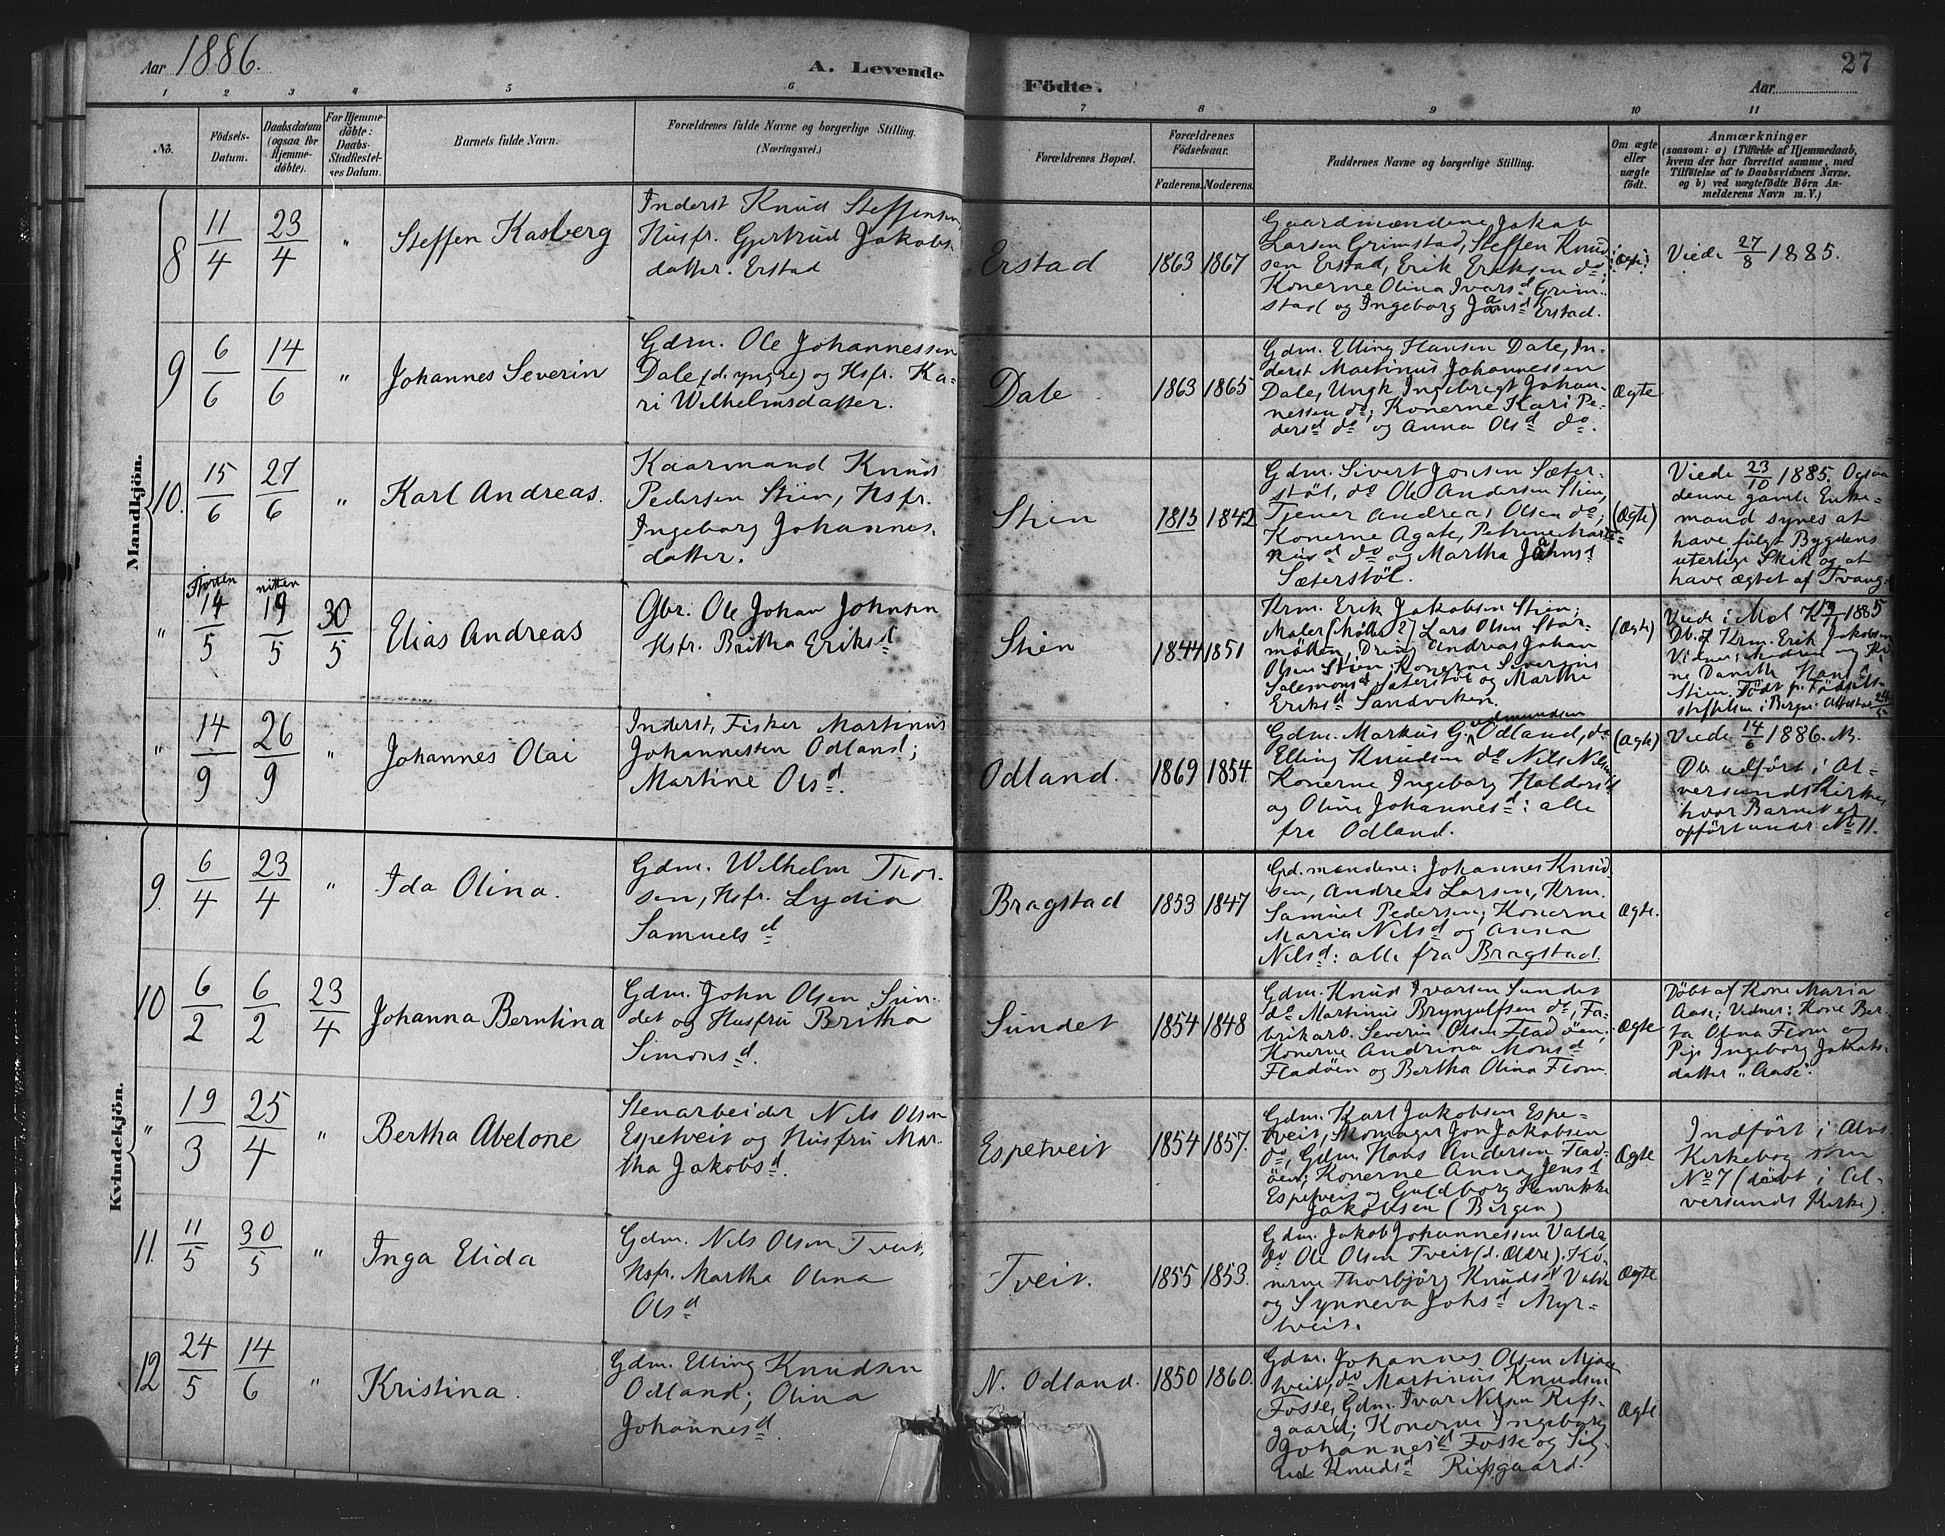 Aar 1886.
A. Levende Födte.
Aar
27
1 2 3 4 5 6 7 8 9 10 11
No.
Födsels-
Datum.
Daabsdatum
(ogsaa for
Hjemme-
döbte).
For Hjemme-
döbte:
Daabs-
Stadfæstel-
ses Datum.
Barnets fulde Navn.
Forældrenes fulde Navne og borgerlige Stilling.
(Næringsvei.)
Forældrenes Bopæl.
Forældrenes
Födselsaar.
Faderens. Moderens.
Faddernes Navne og borgerlige Stilling.
Om ægte
eller
uægte
födt.
Anmærkninger
(saasom: a) i Tilfælde af Hjemmedaab,
hvem der har forrettet samme, med
Tilföielse af to Daabsvidners Navne.
og b) ved uægtefödte Börn An-
melderens Navn m. V.)
Mandkjön.
8
11/4
23/4
"
Steffen Kasberg
Inderst Knud Steffensen
Husfr. Gjertrud Jakobs-
datter. Erstad
Erstad
1863 1867
Gaardmændene Jakob
Larsen Grimstad, Steffen Knud-
sen Erstad, Erik Eriksen do;
Konerne Olina Ivarsd Grim-
stad og Ingeborg Jansd Erstad.
Viede 27/8 1885.
9
6/6
14/6
"
Johannes Severin
Gdm. Ole Johannessen
Dale (d. yngre) og Hsfr. Ka-
ri Wilhelmsdatter.
Dale
1863 1865
Gdm. Elling Hansen Dale, In-
derst Martinus Johannessen
Dale, Ungk. Ingebrigt Johan-
nessen do; Konerne Kari Pe-
dersd do og Anna Olsd do.
Ægte
10.
15/6
27/6
"
Karl Andreas.
Kaarmand Knud
Pedersen Stien, Hsfr.
Ingeborg Johannes-
datter.
Stien
1813 1842
Gdm. Sivert Jonsen Sæter-
stöl, do Ole Andersen Stien,
Tjener Andreas Olsen do;
Konerne Agate, Petrine Marti-
nusd do og Martha Jahnsd
Sæterstöl.
(Ægte)
Viede 23/10 1885. Ogsaa
denne gamle Enke-
mand synes at
have fulgt Bygdens
uterlige Skik og at
have ægtet af Tvang.
"
Fjorten
14/5
nitten
19/5
30/5
Elias Andreas
Gbr. Ole Johan Johnsen
Hsfr. Britha Eriksd
Stien
1844 1851
Krm. Erik Jakobsen Stien;
Maler (Möller?) Lars Olsen Stor-
möllen, Dreng Andreas Johan
Olsen Stien; Konerne Severine
Salemonsd Sæterstöl og Marthe
Eriksd Sandviken.
(Ægte)
Db. af Krm. Erik Jakobsen
"
14/9
26/9
"
Johannes Olai
Inderst, Fisker Martinus
Johannessen Odland;
Martine Olsd.
Odland.
1869 1854
Gdm. Markus Gudmundsen Odland, do
Elling Knudsen do Nils Nilsen
Konerne Ingeborg Haldorsd
og Oline Johannesd: alle
fra Odland.
(Ægte)
Viede 14/6 1886. NB.
Db. udfört i Al-
versunds Kirke,
hvor Barnet er
opfört under No 11.
Kvindekjön.
9.
6/4
23/4
"
Ida Olina.
Gdm. Wilhelm Thor-
sen, Hsfr. Lydia
Samuelsd
Bragstad
1853 1847
Grd. mændene: Johannes Knud-
sen, Andreas Larsen, Krm.
Samuel Pedersen; Konerne
Maria Nilsd og Anna
Nilsd: alle fra Bragstad.
Ægte.
10
6/2
6/2
23/4
Johanna Berntina
Gdm. John Olsen Sun-
det og Husfru Britha
Simonsd.
Sundet
1854 1848
Gdm. Knud Ivarsen Sundet
do Martinus Brynjulfsen do, Fa-
brikarb. Severin Olsen Fladöen;
Konerne Andrina Monsd
Fladöen og Bertha Olina Flom.
Ægte
Döbt af Kone Maria
Aase; Vidner: Kone Ber-
ta Olina Flom og
Pige Ingeborg Jakobs-
datter "Aase".
"
19/3
25/4
"
Bertha Abelone
Stenarbeider Nils Olsen
Espetveit og Husfru Mar-
tha Jakobsd.
Espetveit
1854 1857.
Gdm. Karl Jakobsen Espe-
tveit, Skomager Jon Jakobsen
do, Gdm. Hans Andersen Flad-
öen; Konerne Anna Jensd
Espetveit og Guldborg Henrikke
Jakobsen (Bergen)
Ægte
Indfört i Alvs
Kirkebog som
No 7 (döbt i Al-
versunds Kirke).
11.
11/5
30/5
"
Inga Elida
Gdm. Nils Olsen Tveit,
Hsfr. Martha Olina
Olsd
Tveit.
1855 1853.
Gdm. Jakob Johannessen Valde
do Ole Olsen Tveit (d. Ældre). Ko-
nerne Thorbjörg Knudsd Valde
og Synneva Johsd Myr-
tveit.
Ægte
12
24/5
14/6
"
Kristina.
Gdm. Elling Knudsen
Odland; Olina
Johannesd.
N. Odland.
1850 1860.
Gdm. Johannes Olsen Mjaa-
tveit, do Martinus Knudsen
Fosse, Gdm. Ivar Nilsen Rifs-
gaard; Konerne Ingeborg
Johannesd Fosse og Sig-
rid Knudsd Rifsgaard.
Ægte.